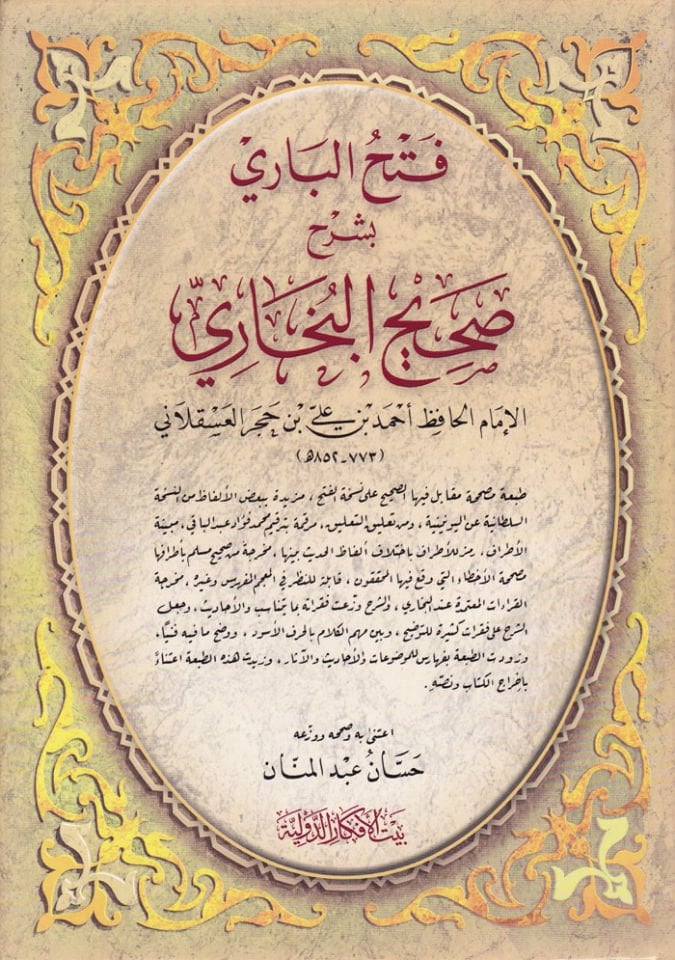 فَتْحُ البَارِيْ
بشرح
صَحِيْحِ البُخَارِيِّ
الإمَام الحَافِظ أحمَد بْن عَليّ بْن حَجَر العَسْقلَاني
(٧٧٣-٨٥٢هـ)
طبعة مصححة مقابل فيها الصحيح على نسخة الفتح، مزيدة ببعض الألفاظ من النسخة
السلطانية عن اليونينية، ومن تعليق التعليق، مرقمة بترقيم محمد فؤاد عبد الباقي، مبينة
الأطراف، رمز للأطراف باختلاف ألفاظ الحديث بينها، مخرجة من صحيح مسلم بأطرافها
مصححة الأخطاء التي وقع فيها المحققون، قابلة للنظر في المعجم المفهرس وغيره، مخرجة
القراءات المعتمدة عند البخاري، والشرح وزعت فقراته بما يتناسب والأحاديث، وجعل
الشرح على فقرات كثيرة للتوضيح، وبين مهم الكلام بالحرف الأسود، ووضح ما فيه فنيًا،
وزودت الطبعة بفهارس للموضوعات والأحاديث والآثار، وزيدت هذه الطبعة اعتناءً
بإخراج الكتاب ونصّه.
اعتنى به وصححه ووزّعه
حَسَّانُ عَبد المنَّان
بَيْت الأفكَار الدَّوْليَّة